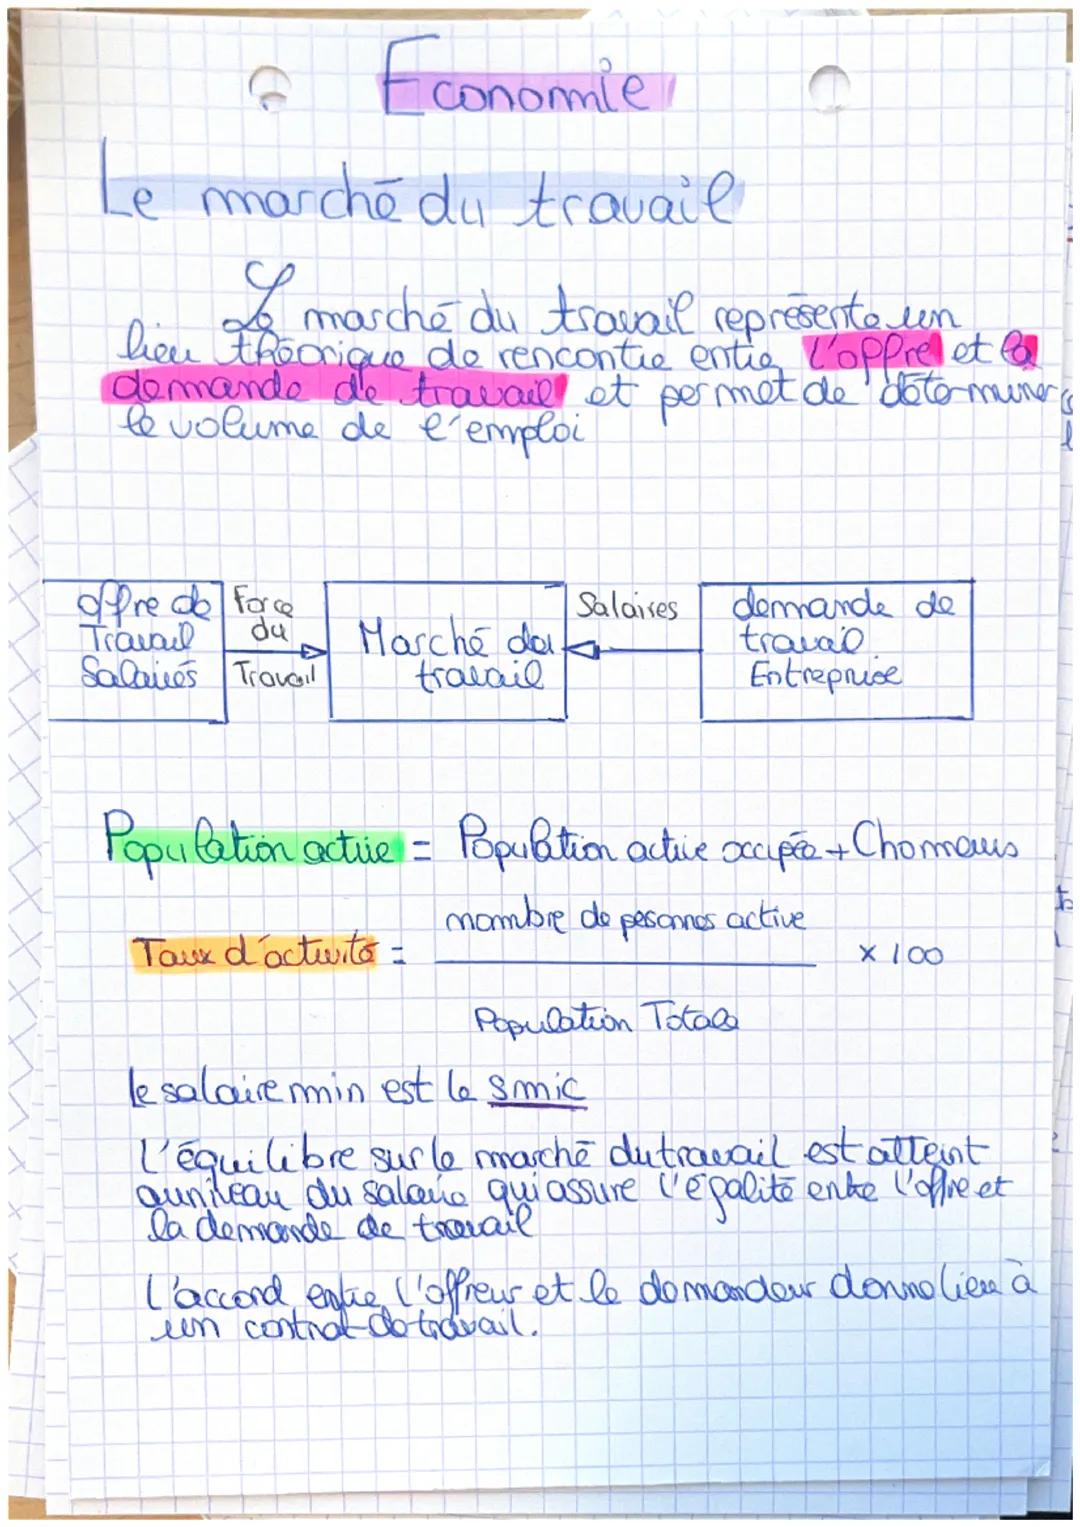 Economie
Le marché du travail
Le marché du travail représente un
lieu théorique de rencontre entre l'offre et la
demande de travail et permet de déterminer
le volume de l'emploi
offre de
Travail
Salariés
Force
du
Travail
Marché du
travail
Salaires
demande de
travail
Entreprise
Population active = Population active occupée + Chomeurs
nombre de pesonnes active
Taux d'activité = x 100
Population Totale
le salaire min est le smic
L'équilibre sur le marché du travail est atteint
au niveau du salaire qui assure l'égalité entre l'offre et
la demande de travail
L'accord entre l'offreur et le demandeur donne lieu à
un contrat de travail.